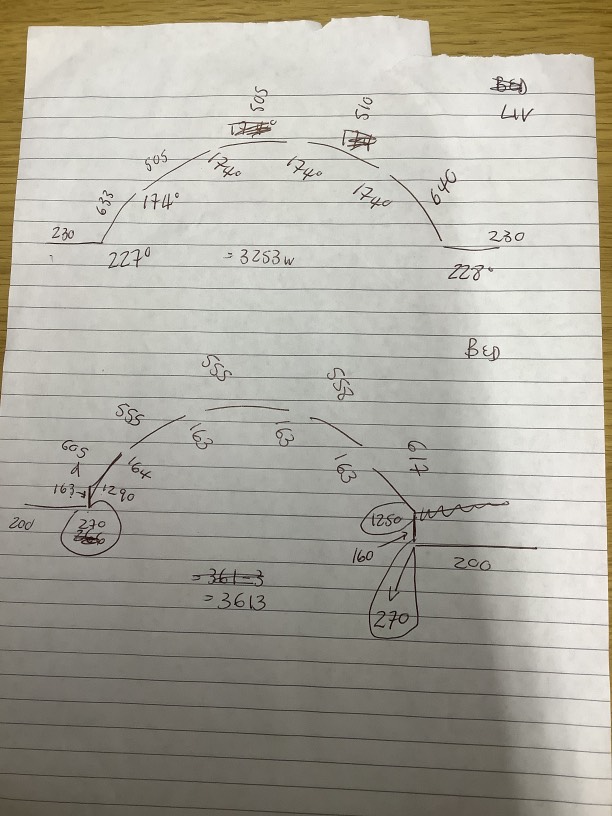 BED
LIV
505
510
174°
505
174°
174°
174°
633
174°
640
230
227°
= 3253w
230
228°
BED
555
558
555
163
163
605
164
163
617
163
1290
200
270
1250
160
200
= 361-3
= 3613
270